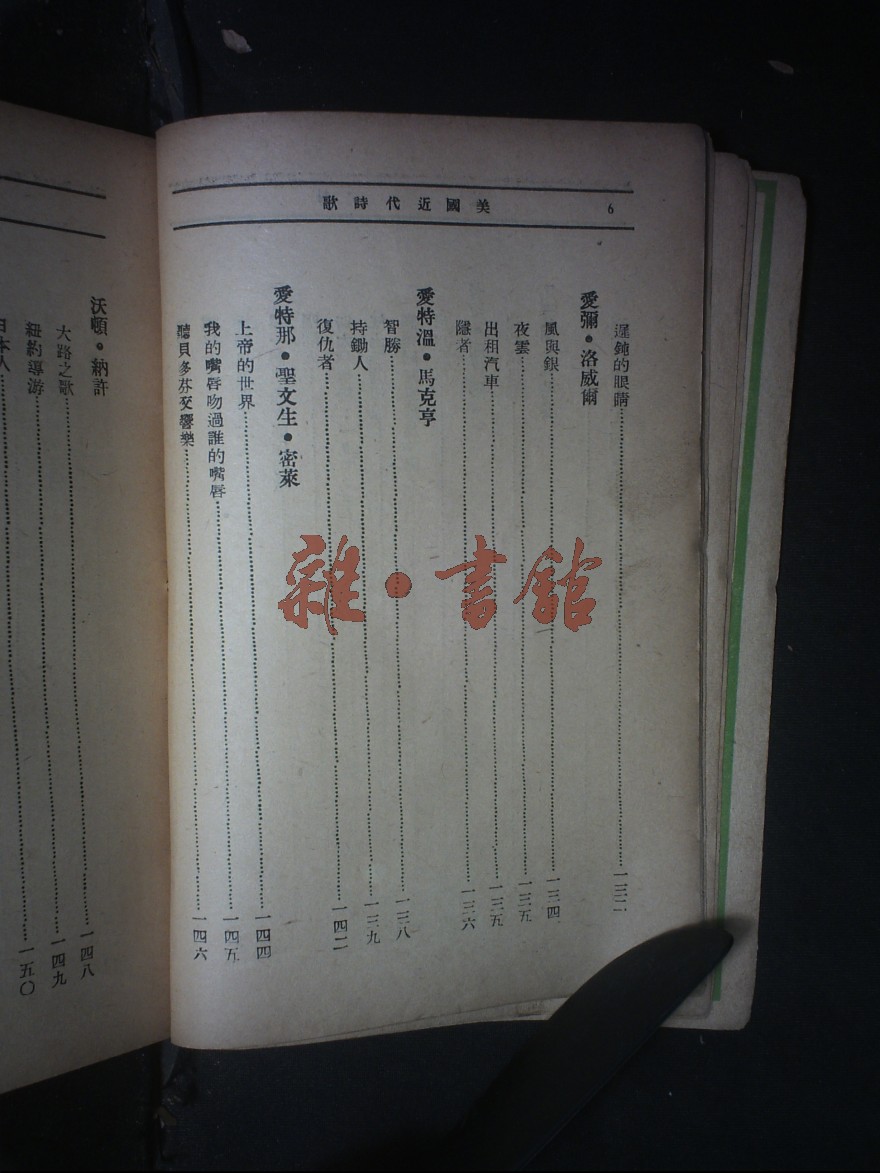 6 美國近代詩歌
遲鈍的眼睛……一三二
愛彌・洛威爾
風與銀……一三四
夜雲……一三五
出租汽車……一三五
隱者……一三六
愛特溫・馬克亨
智勝……一三八
持鋤人……一三九
復仇者……一四二
愛特那・聖文生・密萊
上帝的世界……一四四
我的嘴唇吻過誰的嘴唇……一四五
聽貝多芬交響樂……一四六
沃頓・納許
大路之歌……一四八
紐約導游……一四九
日本人……一五〇
雜・書館